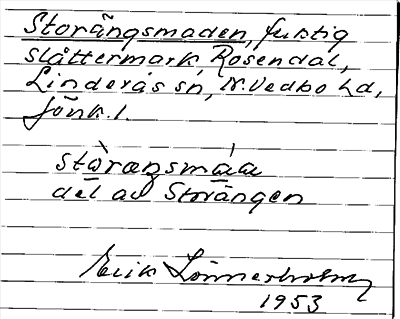 Storängsmaden, fuktig
slåttermark, Rosendal,
Linderås sn, N. Vedbo hd,
Jönk. l.
del av Storängen
Erik Lönnerholm
1953